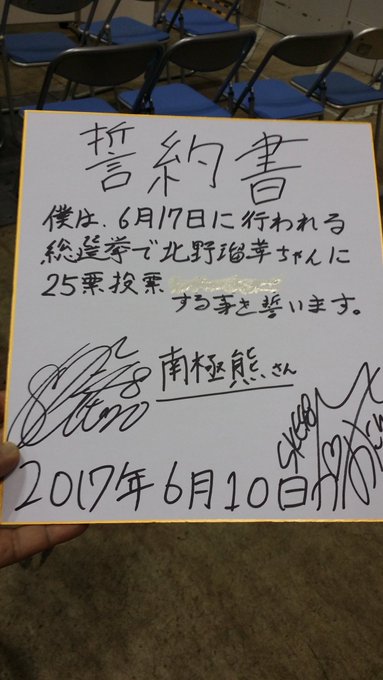 誓約書
僕は、6月17日に行われる
総選挙で北野瑠華ちゃんに
25票投票
する事を誓います。
南極熊さん
SKE48
2017年6月10日